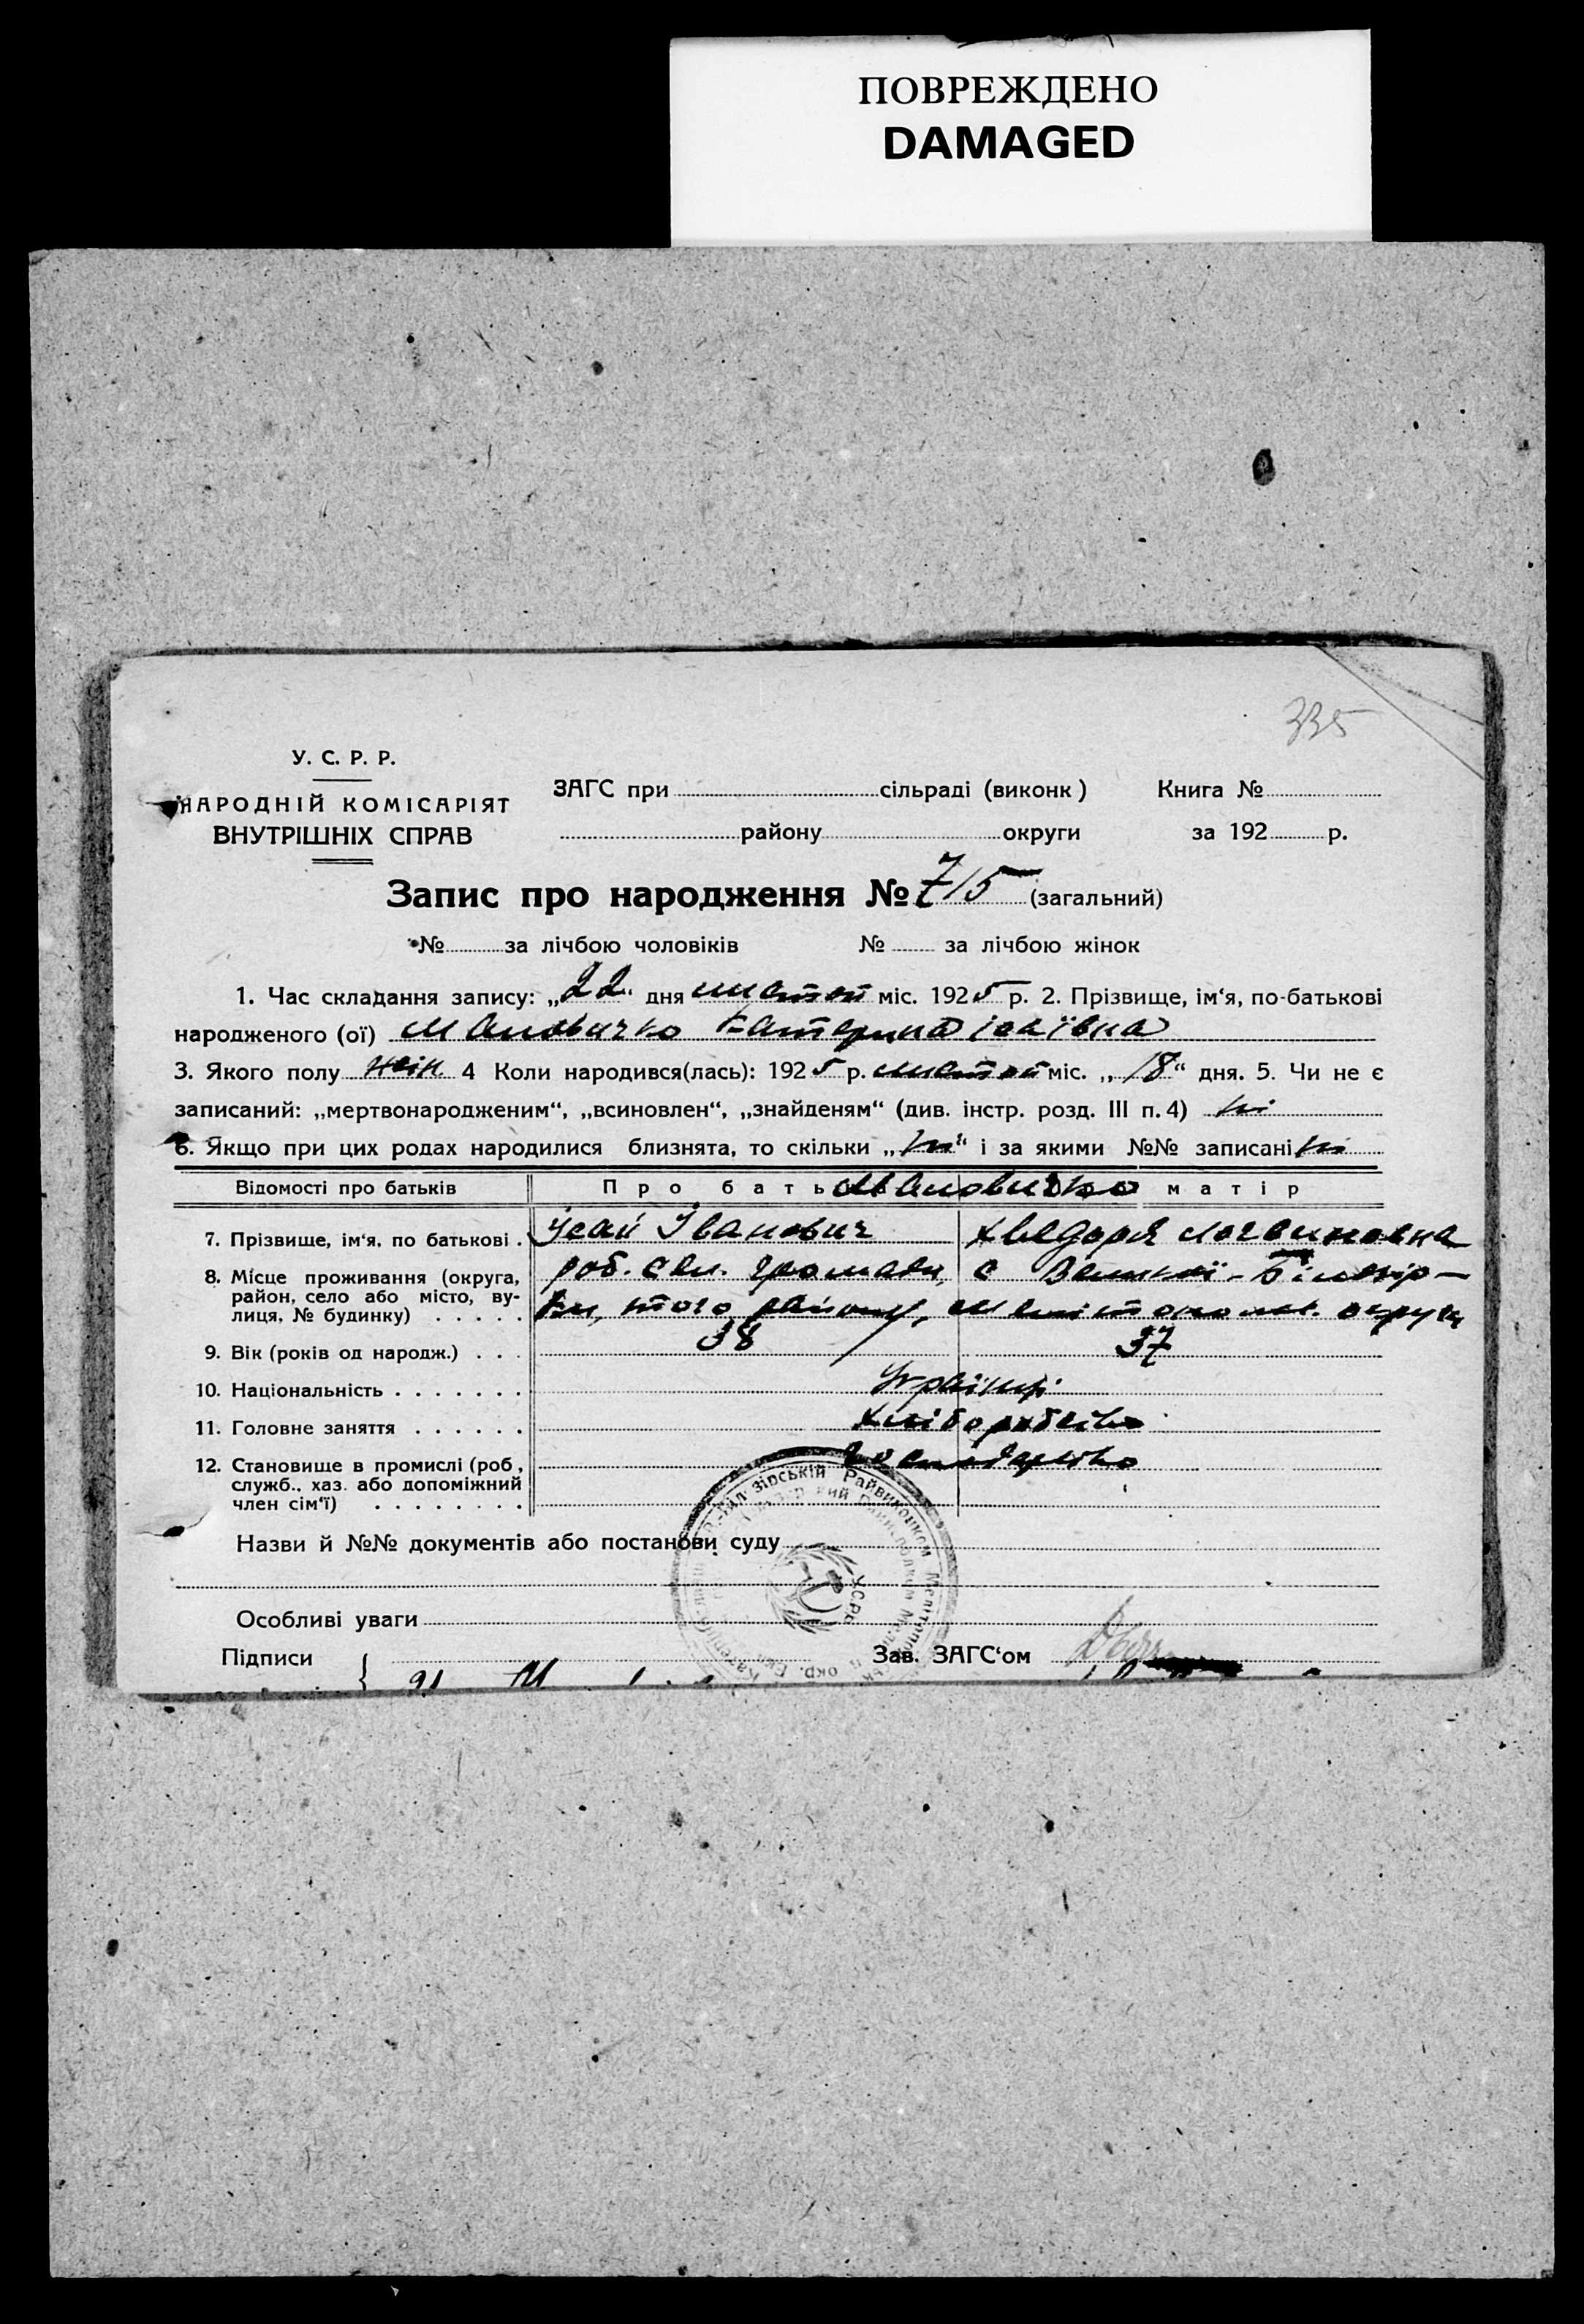 ПОВРЕЖДЕНО
DAMAGED
335
У. С. Р. Р.
НАРОДНІЙ КОМІСАРІЯТ
ВНУТРІШНІХ СПРАВ
ЗАГС при сільраді (виконк) Книга №
району округи за 192 р.
Запис про народження № 715 (загальний)
№ за лічбою чоловіків № за лічбою жінок
1. Час складання запису: „22“ дня листоп міс. 1925 р. 2. Прізвище, ім‘я, по-батькові
народженого (ої) Мановичко Катерина Ісаївна
3. Якого полу жін 4 Коли народився(лась): 1925 р. листоп міс. „18“ дня. 5. Чи не є
записаний: „мертвонародженим“, „всиновлен“, „знайденям“ (див. інстр. розд. III п. 4) ні
6. Якщо при цих родах народилися близнята, то скільки „ні“ і за якими №№ записані ні
Відомості про батьків Про бать Мановичко матір
7. Прізвище, ім‘я, по батькові . Ісай Іванович Хведора Логвиновна
8. Місце проживання (округа, район, село або місто, вулиця, № будинку) . . . . . роб. сел. громади, с Великої-Білозір-
ки, того району, Мелітопольс. округи
9. Вік (років од народж.) . . . 38 37
10. Національність . . . . . . . Українці
11. Головне заняття . . . . . . хліборобство
12. Становище в промислі (роб, служб.. хаз. або допоміжний член сім‘ї) . . . . . . . . господарство
Назви й №№ документів або постанови суду
Особливі уваги
Підписи Зав. ЗАГС‘ом